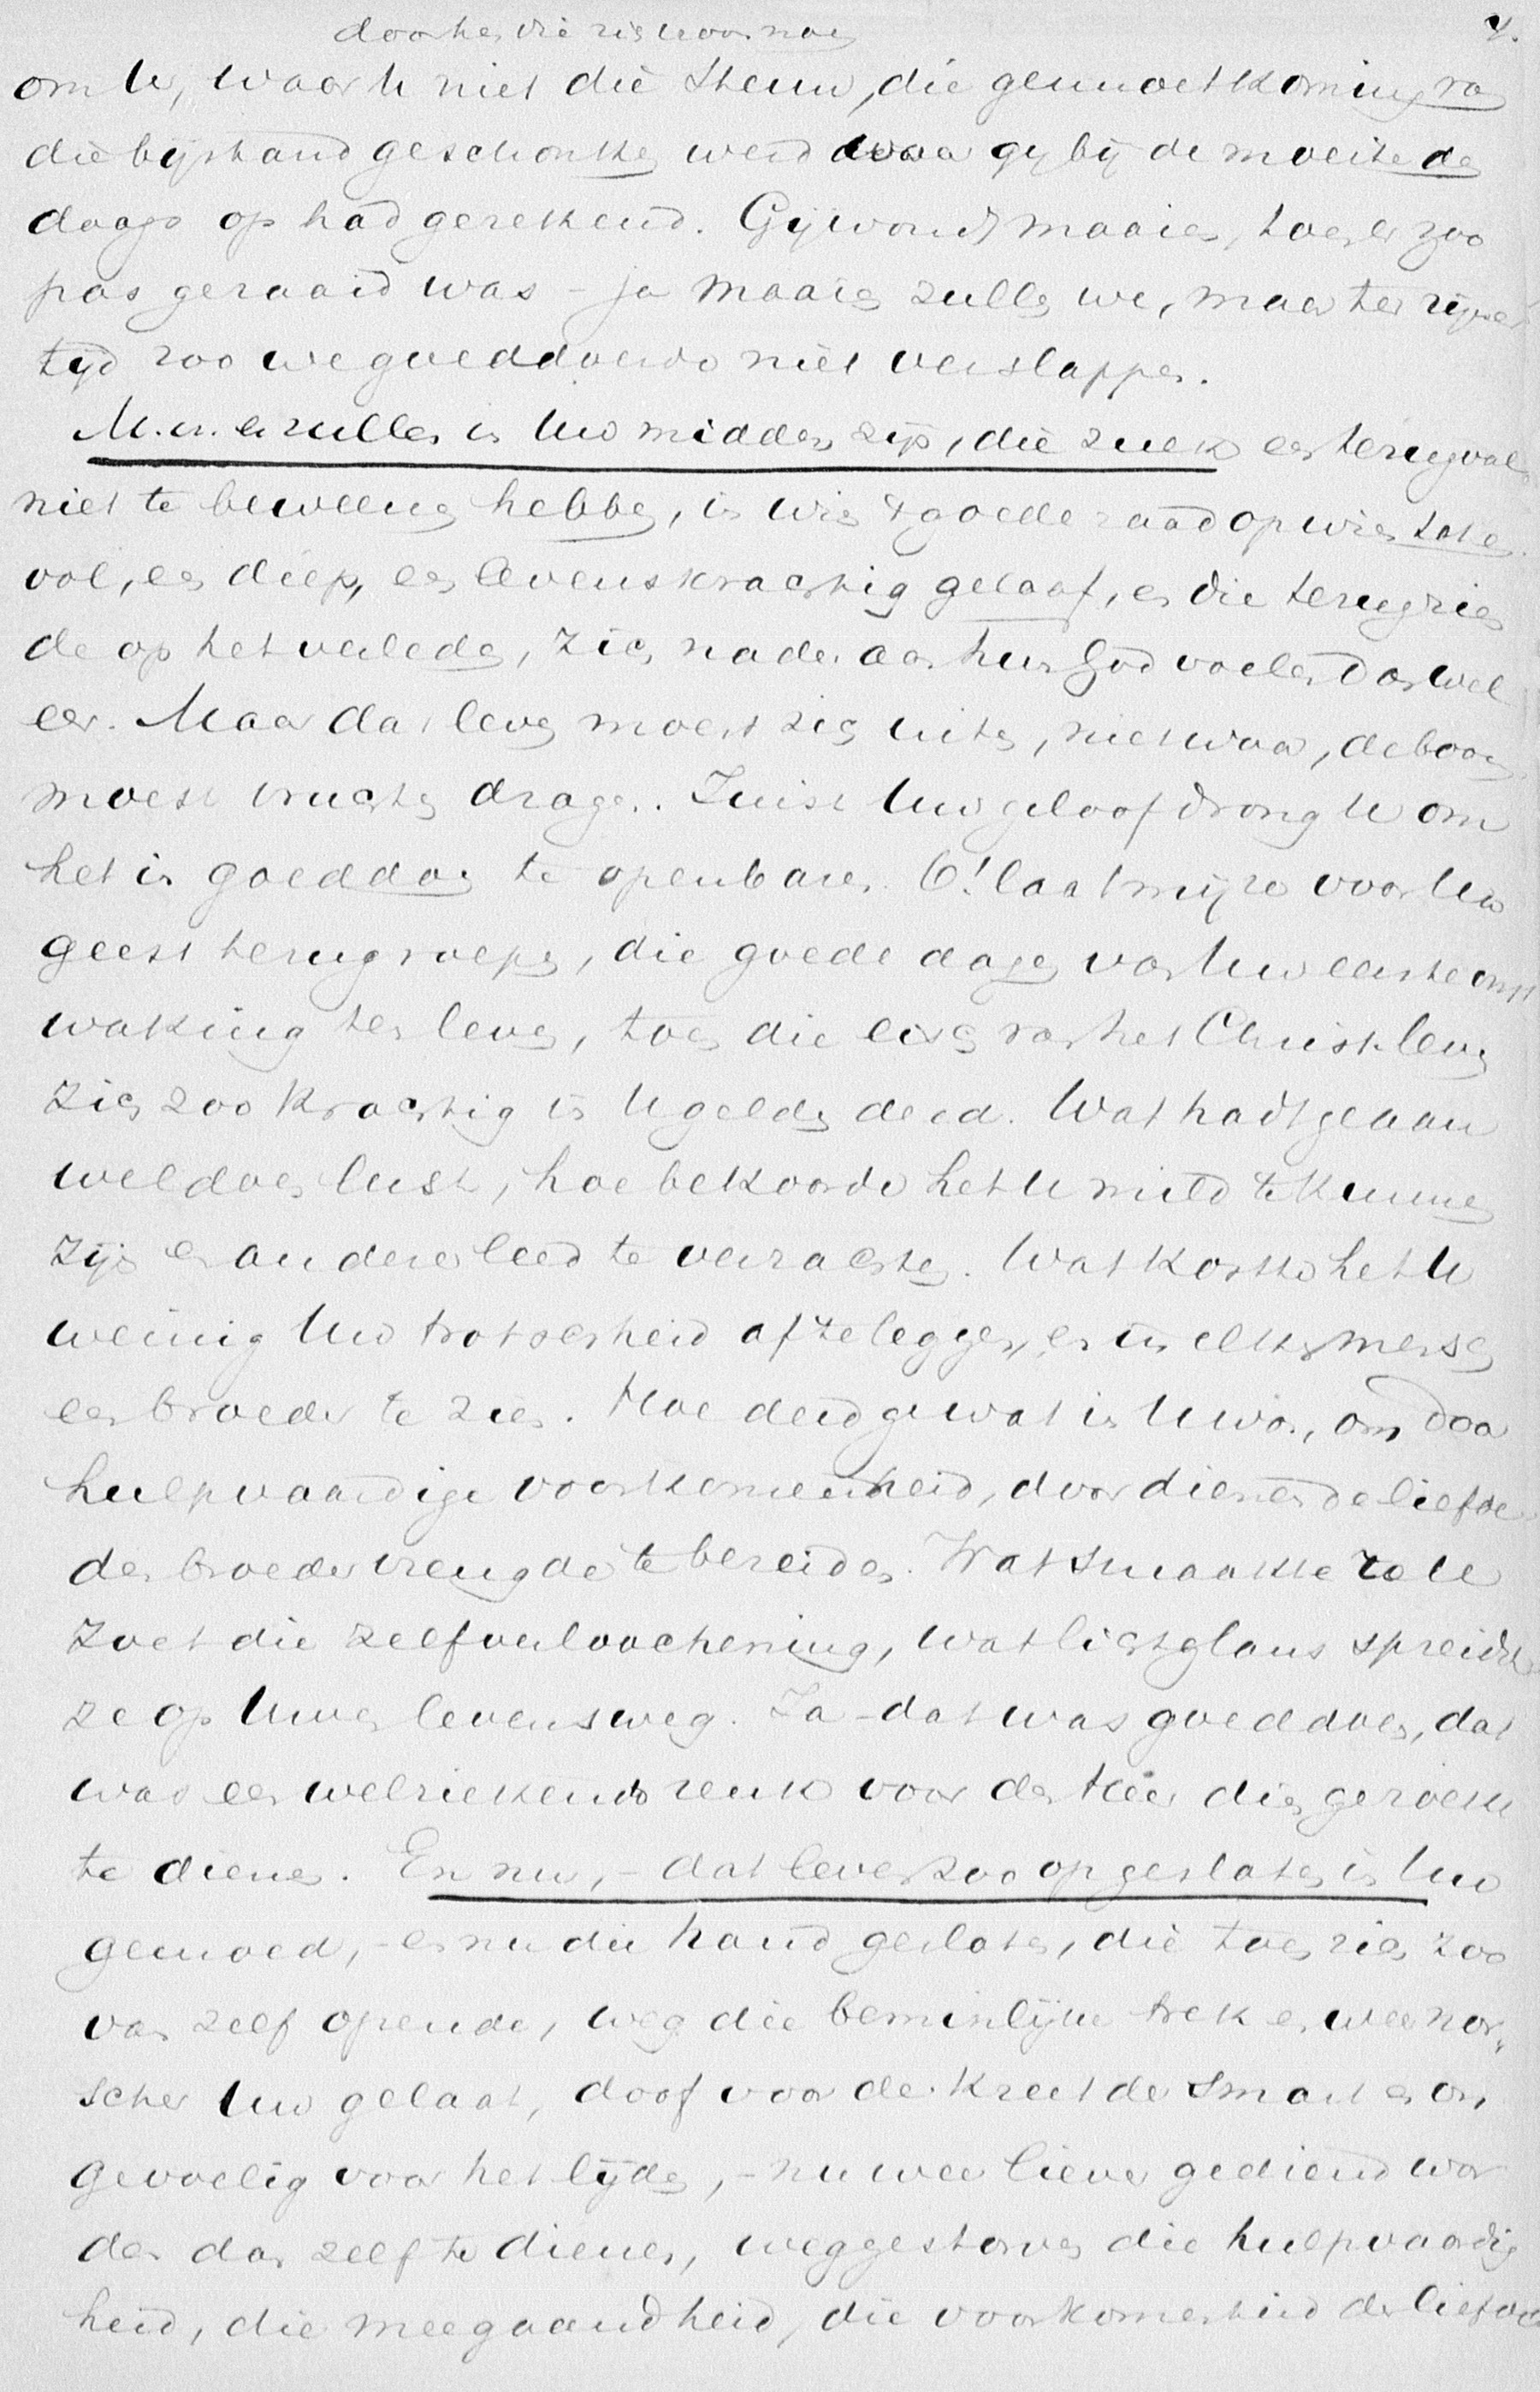 door hen die zich voor nog
4.
om U, waar U niet die steun, die gemoetkoming, ra
die bijstand geschonken werd waar gij bij de moeite des
daags op had gerekend. Gij wondt maaien, toen er zoo
pas gezaaid was – ja maaien zullen we, maar ter rijper
tijd zoo we goeddoende niet verslappen.
M. vr. er zullen in Uw midden zijn, die zulk een terugval
niet te beweenen hebben, in wien 't goede zaad op wies tot een
vol, en diep, en levenskrachtig geloof, en die terugzien
de op het verleden, zich nader aan hun God voelen dan wel
eer. Maar dat leven moest zich uiten, niet waar, de boom
moest vruchten dragen. Juist Uw geloof drong U om
het in goeddoen te openbaren. O! laat mij ze voor Uw
geest terugroepen, die goede dagen van Uw eerste ont
waking ten leven, toen die eisch van het Christ. leven
zich zoo krachtig in U gelden deed. Wat hadt ge aan
weldoen lust, hoe bekoorde het U mild te kunnen
zijn en anderer leed te verzachten. Wat kostte het U
weinig Uw trotschheid af te leggen, en in elken mensch
een broeder te zien. Hoe deed ge wat in U was, om door
hulpvaardige voorkomendheid, door dienende liefde
den broeder vreugde te bereiden. Wat smaakte ze U
zoet die zelfverloochening, wat lichtglans spreidde
ze op Uwen levensweg. Ja – dat was goeddoen, dat
was een welriekende reuk voor den Heer dien ge zocht
te dienen. En nu, – dat leven zoo opgesloten in Uw
gemoed, – en nu die hand gesloten, die toen zich zoo
van zelf opende, weg die beminlijke trek en weer nor„
scher Uw gelaat, doof voor de kreet der smart en on,
gevoelig voor het lijden, – nu weer liever gediend wor
den dan zelf te dienen, weggestorven die hulpvaardig
heid, die meegaandheid, die voorkomenheid der liefde